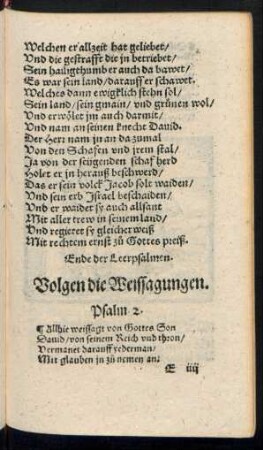 Welchen er allzeit hat geliebet/
Vnd die gestrafft die jn betriebet/
Sein hailigthumb er auch da bawet/
Es war sein land/ darauff er schawet.
Welches dann ewigklich stehn sol/
Sein land/ sein gmain/ vnd grünen wol/
Vnd erwölet jm auch darmit/
Vnd nam an seinen knecht Dauid.
Der Herr nam jn an da zumal
Von den Schafen vnd jrem stal/
Ja von der seugenden schaf herd
Holet er jn herauß beschwerd/
Das er sein volck Jacob solt waiden/
Vnd sein erb Israel beschaiden/
Vnd er waidet sy auch allsant
Mit aller trew in seinem land/
Vnd regieret sy gleicher weiß
Mit rechtem ernst zů Gottes preiß.
Ende der Leerpsalmen.
Volgen die Weissagungen.
Psalm 2.
¶ Allhie weissagt von Gottes Son
Dauid/ von seinem Reich vnd thron/
Vermanet darauff yederman/
Mit glauben jn zů nemen an:
E iiij